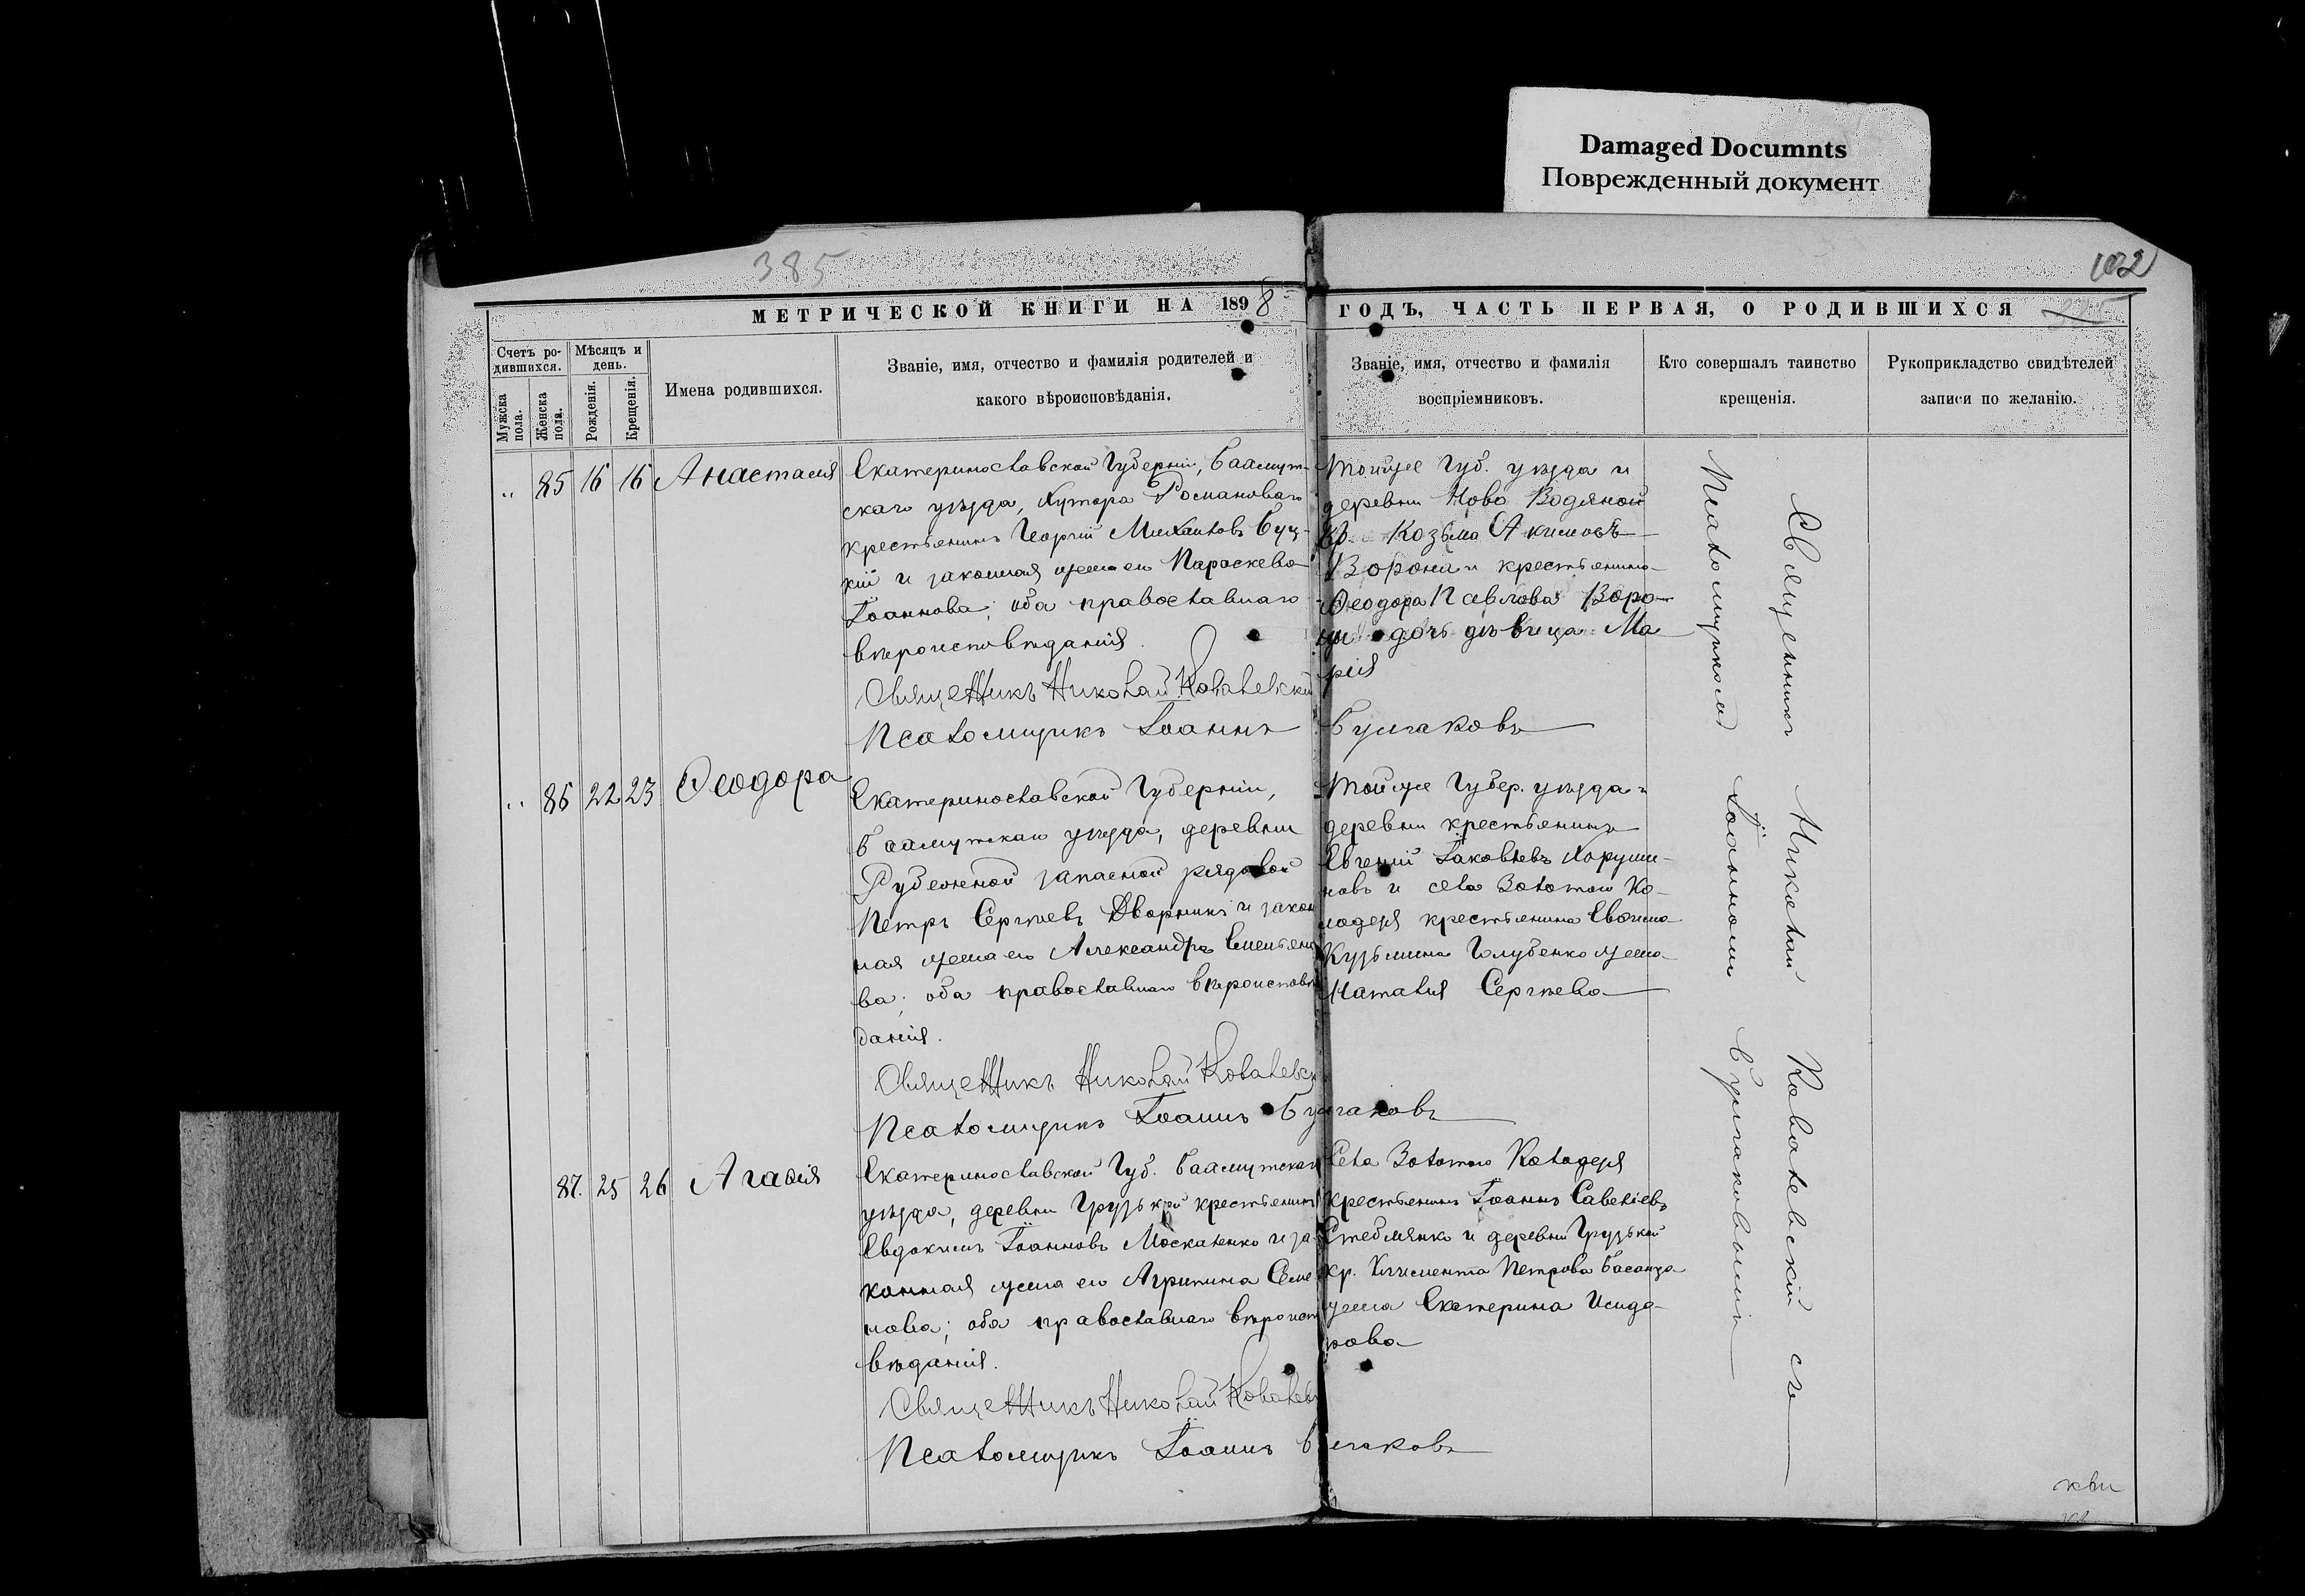 Damaged Documnts
Поврежденный документ
385
102
МЕТРИЧЕСКОЙ КНИГИ НА 1898
ГОДЪ, ЧАСТЬ ПЕРВАЯ, О РОДИВШИХСЯ
Счетъ ро-
дившихся.
Мужска пола.
Женска пола.
Мѣсяцъ и
день.
Рожденія.
Крещенія.
Имена родившихся.
Званіе, имя, отчество и фамилія родителей и
какого вѣроисповѣданія.
Званіе, имя, отчество и фамилія
воспріемниковъ.
Кто совершалъ таинство
крещенія.
Рукоприкладство свидѣтелей
записи по желанію.
" 85 16 16 Анастасія
Екатеринославской Губерніи, Бахмут-
скаго уѣзда, Хутора Романоваго
крестьянинъ Георгій Михаиловъ Буц-
кій и законная жена его Параскева
Іоаннова; оба православнаго
вѣроисповѣданія.
Священникъ Николай Ковалевскій
Псаломщикъ Іоаннъ Булгаковъ
Тойже Губ. уѣзда и
деревни Ново Водяной
кр. Козьма Акимовъ
Ворона и крестьянина
Ѳеодора Павлова Воро-
ны дочь дѣвица Ма
рія
" 86 22 23 Ѳеодора
Екатеринославской Губерніи,
Бахмутскаго уѣзда, деревни
Рубежной запасной рядовой
Петръ Сергѣевъ Дворникъ и закон
ная жена его Александра Емельяно
ва; оба православнаго вѣроисповѣ
данія.
Священникъ Николай Ковалевск
Псаломщикъ Іоаннъ Булгаковъ
Тойже Губер. уѣзда и
деревни крестьянинъ
Евгеній Іаковлевъ Хоруж-
новъ и села Золотого Ко-
лодезя крестьянина Евѳима
Кузьмина Голубенко жена
Наталія Сергѣева
87. 25 26 Агаѳія
Екатеринославской Губ. Бахмутскаго
уѣзда, деревни Грузькой крестьянинъ
Евдокимъ Іоанновъ Москаленко и за-
конная жена его Агрипина Семе
нова; оба православнаго вѣроиспо
вѣданія.
Священникъ Николай Ковалев
Псаломщикъ Іоаннъ Булгаковъ
Села Золотого Колодезя
крестьянинъ Іоаннъ Савеліевъ
Стеблянко и деревни Грузькой
кр. Климента Петрова Басанца
жена Екатерина Исидо-
рова
Священникъ Николай Ковалевскій съ
Псаломщикомъ Іоанномъ Булгаковымъ